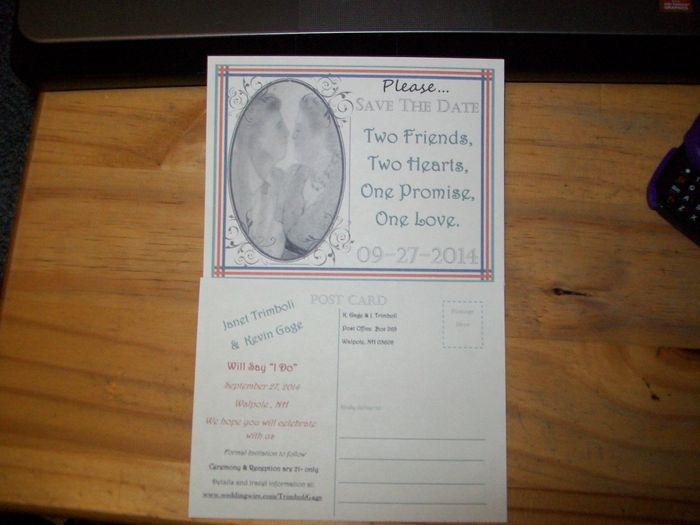 Please...
SAVE THE DATE
Two Friends,
Two Hearts,
One Promise,
One Love.
09-27-2014
POST CARD
Janet Trimboli
& Kevin Gage
Will Say "I Do"
September 27, 2014
Walpole, NH
We hope you will celebrate
with us
Formal invitation to follow
Ceremony & Reception are 21+ only
Details and travel information at:
www.weddingwire.com/TrimboliGage
K. Gage & J. Trimboli
Post Office Box 263
Walpole, NH 03608
Postage
Here